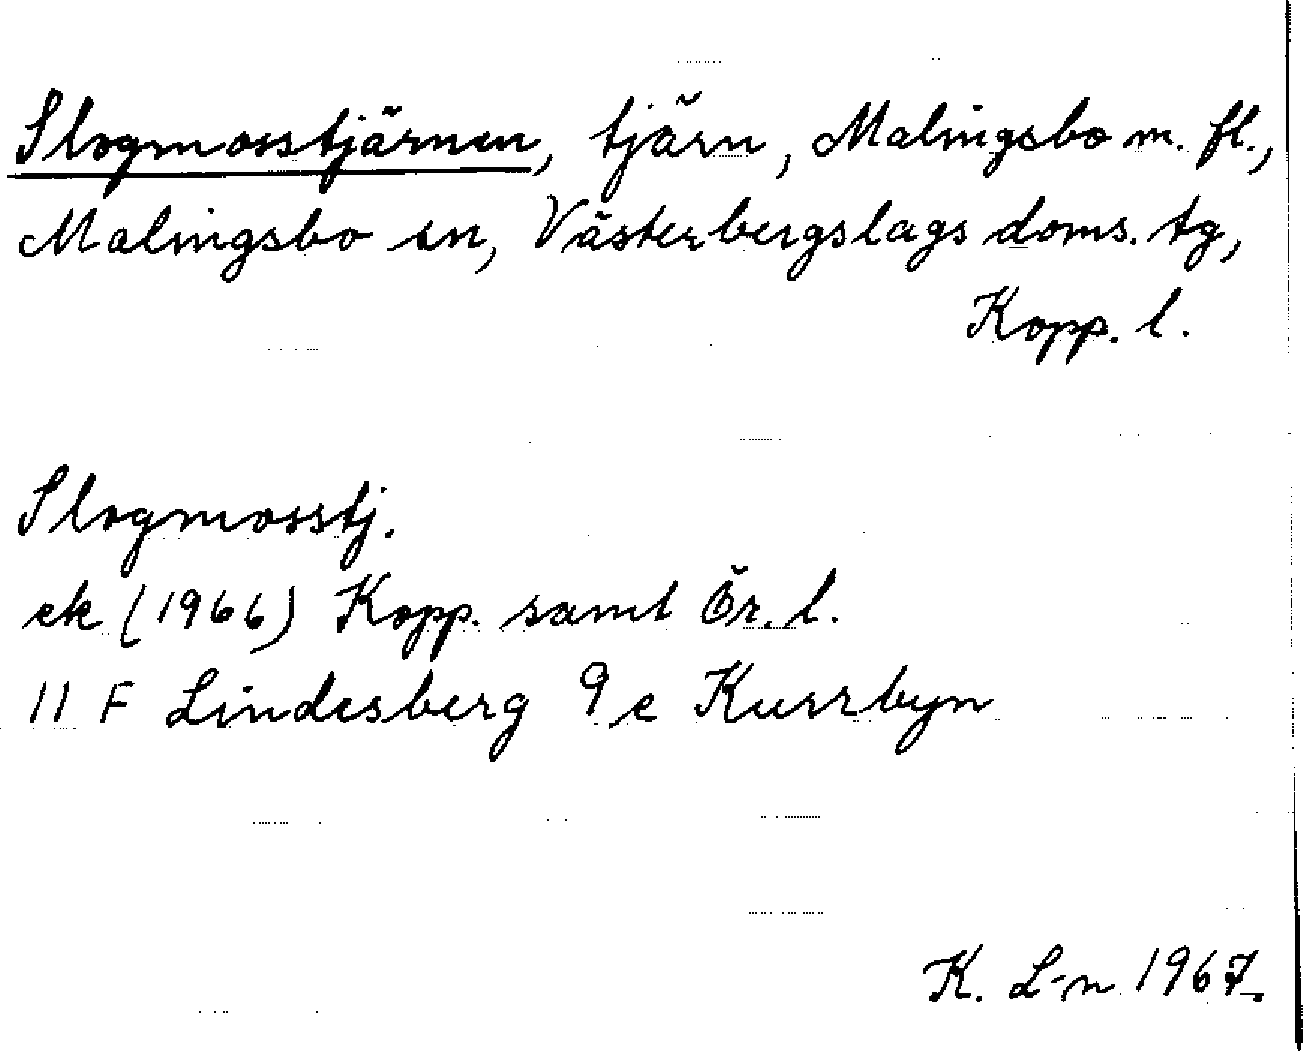 Slogmosstjärnen, tjärn, Malingsbo m. fl.,
Malingsbo sn, Västerbergslags doms. tg,
Kopp. l.
Slogmosstj.
ek (1966) Kopp. samt Ör. l.
11 F Lindesberg 9 e Kurrbyn
K. L-n 1967.